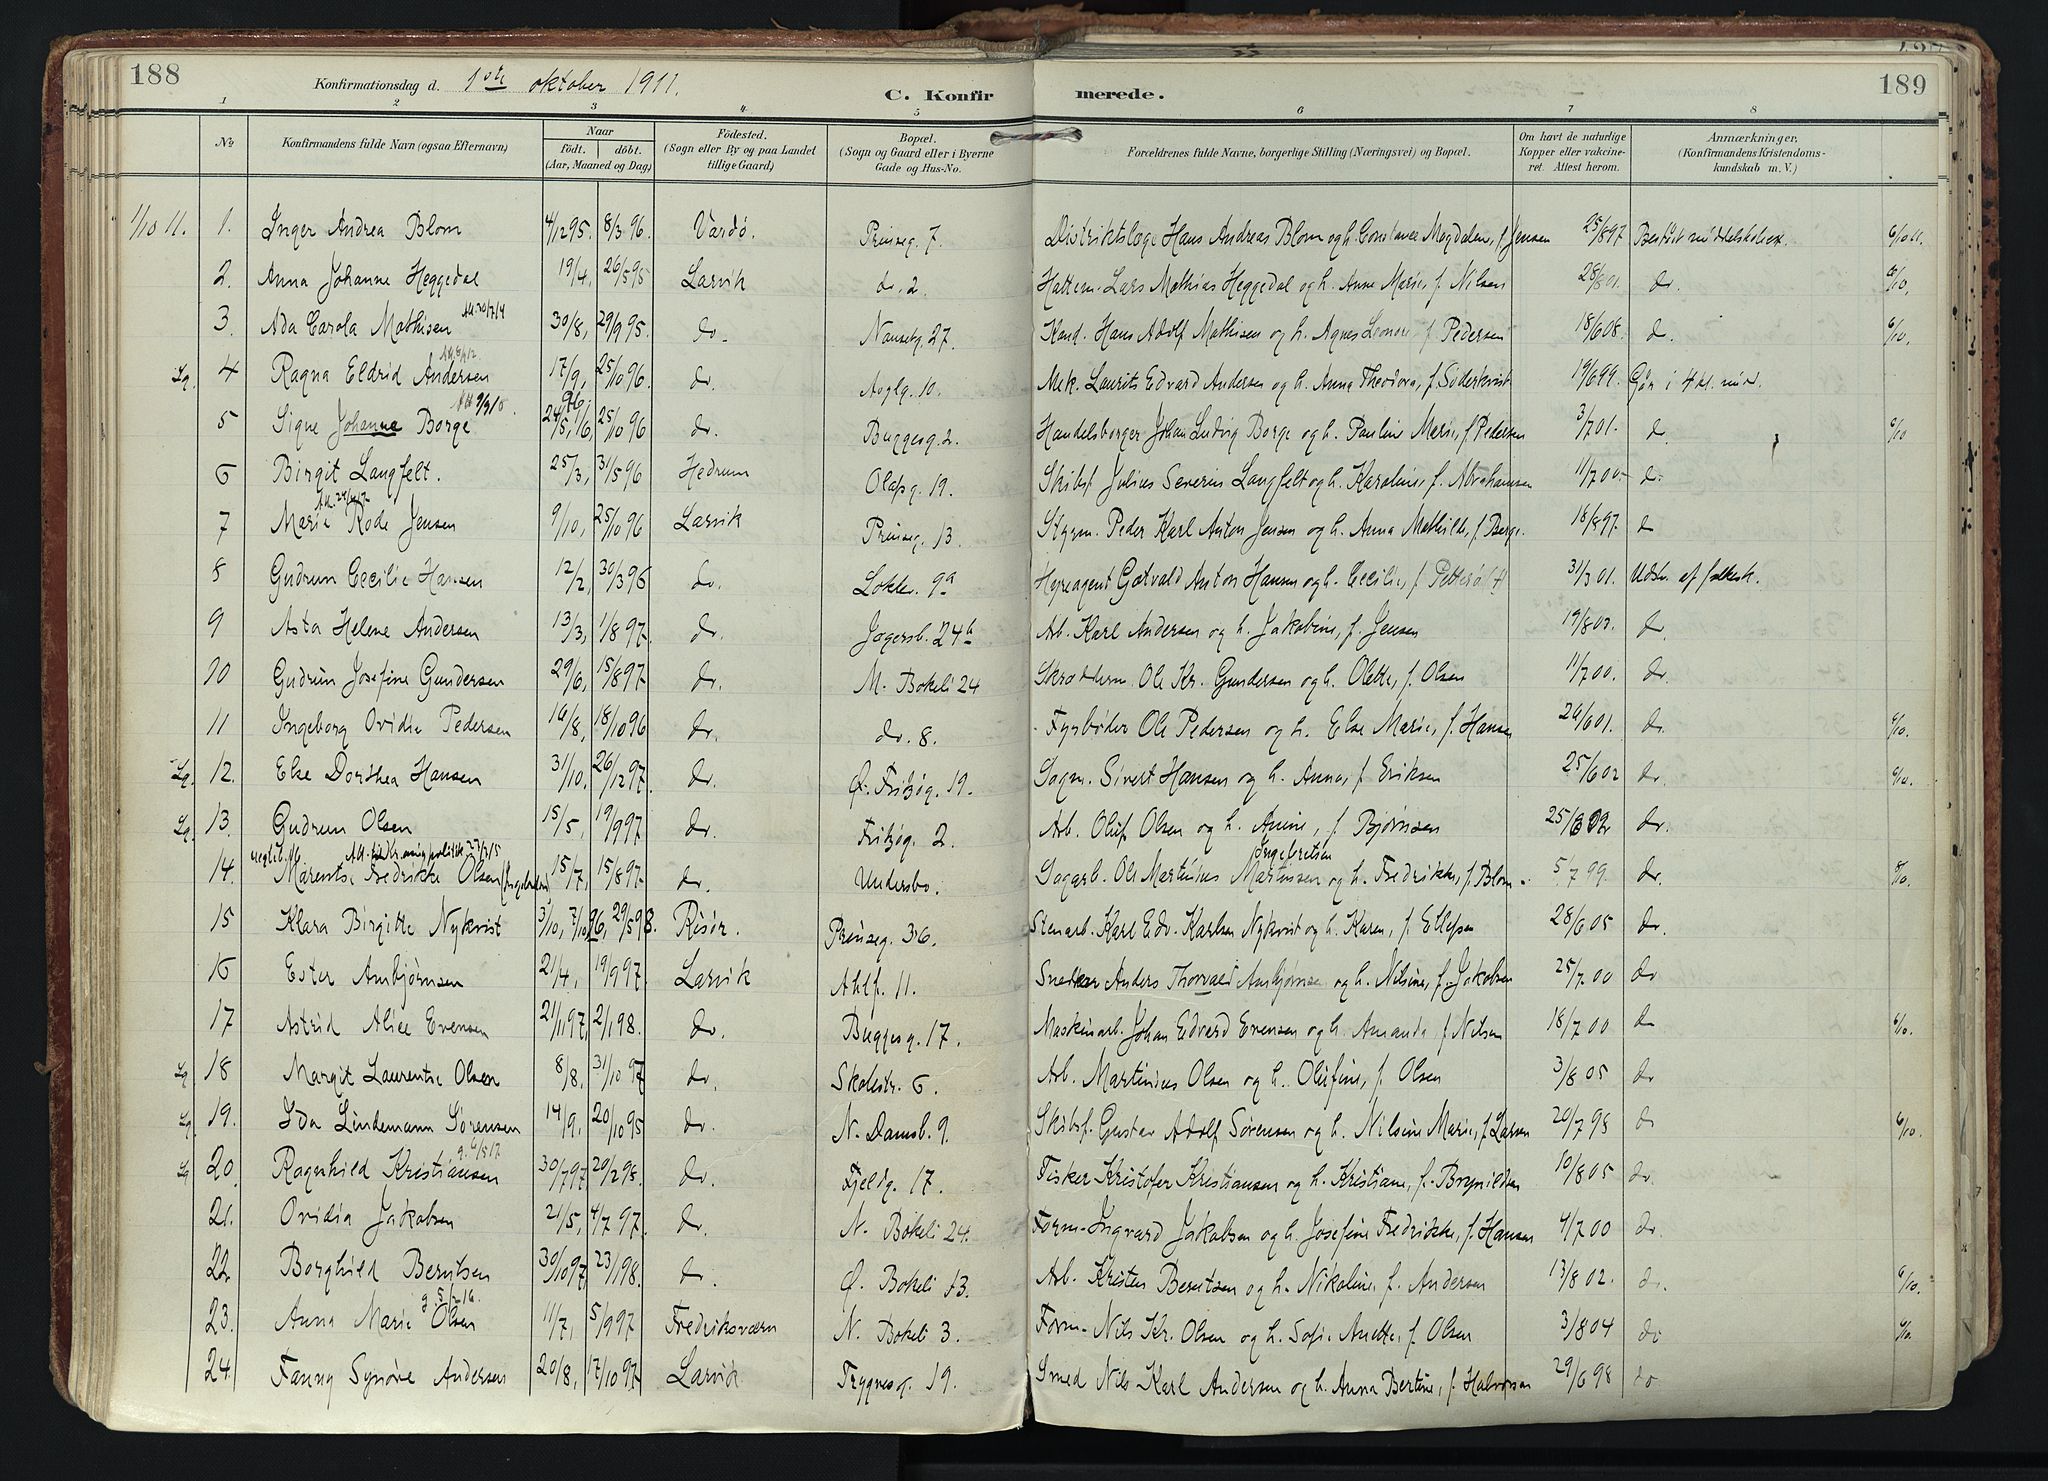 188
Konfirmationsdag d. 1ste oktober 1911.
C. Konfirmerede.
189
1 2 3 4 5 6 7 8
No
Konfirmandens fulde Navn (ogsaa Efternavn)
Naar
födt. döbt.
(Aar, Maaned og Dag)
Födested.
(Sogn eller By og paa Landet
tillige Gaard)
Bopæl.
(Sogn og Gaard eller i Byerne
Gade og Hus-No.
Forældrenes fulde Navne, borgerlige Stilling (Næringsvei) og Bopæl.
Om havt de naturlige
Kopper eller vakcine-
ret. Attest herom.
Anmærkninger.
(Konfirmandens Kristendoms-
kundskab m. V.)
1/10 11. 1. Inger Andrea Blom 4/12 95. 8/3 96. Vardø. Prinseg. 7. Distriktslæge Hans Andreas Blom og h. Constance Magdalene, f. Jensen 25/8 97 Bestaat middelskoleex. 6/10 11.
2. Anna Johanne Heggedal 19/4, 26/5 95 Larvik do. 2. Hattem. Lars Mathias Heggedal og h. Anne Marie, f. Nilsen 28/8 01. do. 6/10.
3. Ada Carola Mathisen 30/8, 29/9 95. do. Nansetg. 27. Kand. Hans Adolf Mathisen og h. Agnes Leonore f. Pedersen 18/6 08. d. 6/10.
Lq. 4 Ragna Eldrid Andersen 17/9, 25/10 96. do. 10. Mek. Laurits Edvard Andersen og h. Anna Theodora, f. Søderkvist 19/6 99. Går i 4 kl.
5 Signe Johanne Borge 24/5, 25/10 96 do. Buggesg. 2. Handelsborger Johan Ludvig Borge og h. Pauline Marie, f. Pedersen 3/7 01. d. 6/10
6 Birgit Langfelt. 25/3, 31/5 96 Hedrum Olafsg. 19. Skibsf. Julius Severin Langfelt og h. Karoline, f. Abrahamsen 11/7 00. d.
7 Marie Rode Jensen 9/10, 25/10 96 Larvik Prinseg. 13. Styrm. Peder Karl Anton Jensen og h. Anna Mathilde, f. Berge. 18/8 97. d
8 Gudrun Cecilie Hansen 12/2, 30/3 96 do. 9a Hyreagent Anton Hansen og h. Cecilie, f. 31/3 01. Udsk. af folkesk.
9 Asta Helene Andersen 13/3, 1/8 97. do. Jegersb. 24b Arb. Karl Andersen og h. Jakobine, f. Jensen 19/8 02. do.
10 Gudrun Josefine Gundersen 29/6, 15/8 97. do. M. Bokeli 24 Skræderm. Ole Kr. Gundersen og h. Olette, f. Olsen 11/7 00. do.
11 Ingeborg Ovidie Pedersen 16/8, 18/10 96 do. do. 8. Fyrbøder Ole Pedersen og h. Else Marie, f. Hansen 26/6 01. do. 6/10.
Lq. 12. Else Dorthea Hansen 31/10. 26/12 97. do. Ø. Fritzøg. 19. Sagm. Sivert Hansen og h. Anna, f. Eriksen 25/6 02 do. 6/10.
Lq. 13. Gudrun Olsen 15/5, 19/9 97 do. Fritzøg. 2. Arb. Oluf Olsen og h. Anine, f. Bjørnsen 25/6 02 do.
14. Marentse Fredrikke Olsen (Ingebretsen) 15/7, 15/8 97. do. Undersbo. Sagarb. Ole Martinius Martinsen Ingebretsen og h. Fredrikke, f. Blom 5/7 99. do. 6/10.
15 Klara Birgitte Nykvist 3/10, 7/10 96, 29/5 98. Risør. Prinseg. 36. Stenarb. Karl Edv. Karlsen Nykvist og h. Karen, f. Ellefsen 28/6 05 do.
16 Ester Ambjørnsen 21/4, 19/9 97. Larvik Ahlf. 11. Snekker Anders Thorvald Ambjørnsen og h. Nilsine, f. Jakobsen 25/7 00 do
17 Astrid Alice Evensen 21/11 97, 2/1 98. do. Buggesg. 17. Maskinarb. Johan Edvard Evensen og h. Amanda f. Nilsen 18/7 00 do 6/10.
Lq 18 Margit Laurentse Olsen 8/8, 31/10 97 do. Skolestr. 6. Arb. Martinius Olsen og h. Olufine, f. Olsen 3/8 05 do
Lq. 19. Ida Lindemann Sørensen 14/9, 20/10 95 do. N. Damsb. 9. Skibsf. Gustav Adolf Sørensen og h. Nilsine Marie, f. Larsen 20/7 98 do 6/10.
Lq 20. Ragnhild Kristiansen 30/7 97 20/2 98. do. Fjeldg. 17. Fisker Kristofer Kristiansen og h. Kristiane, f. Brynildsen 10/8 05 do.
21. Ovidia Jakobsen 21/5, 4/7 97. do. N. Bokeli 24. Form. Ingvard Jakobsen og h. Josefine Fredrikke, f. Hansen 4/7 00 do
22 Borghild Berntsen 30/10 97. 23/1 98. do. Ø. Bokeli 13. Arb. Kristen Berntsen og h. Nikoline, f. Andersen 13/8 02. do. 6/10.
23. Anna Marie Olsen 11/7, 5/9 97 Fredriksværn N. Bokeli 3. Form. Nils Kr. Olsen og h. Sofie Anette, f. Olsen 3/8 04 do 6/10.
24. Fanny Synøve Andersen 20/8, 17/10 97. Larvik Tryggvesg. 19. Smed Nils Karl Andersen og h. Anna Bertine, f. Halvorsen 29/6 98 do